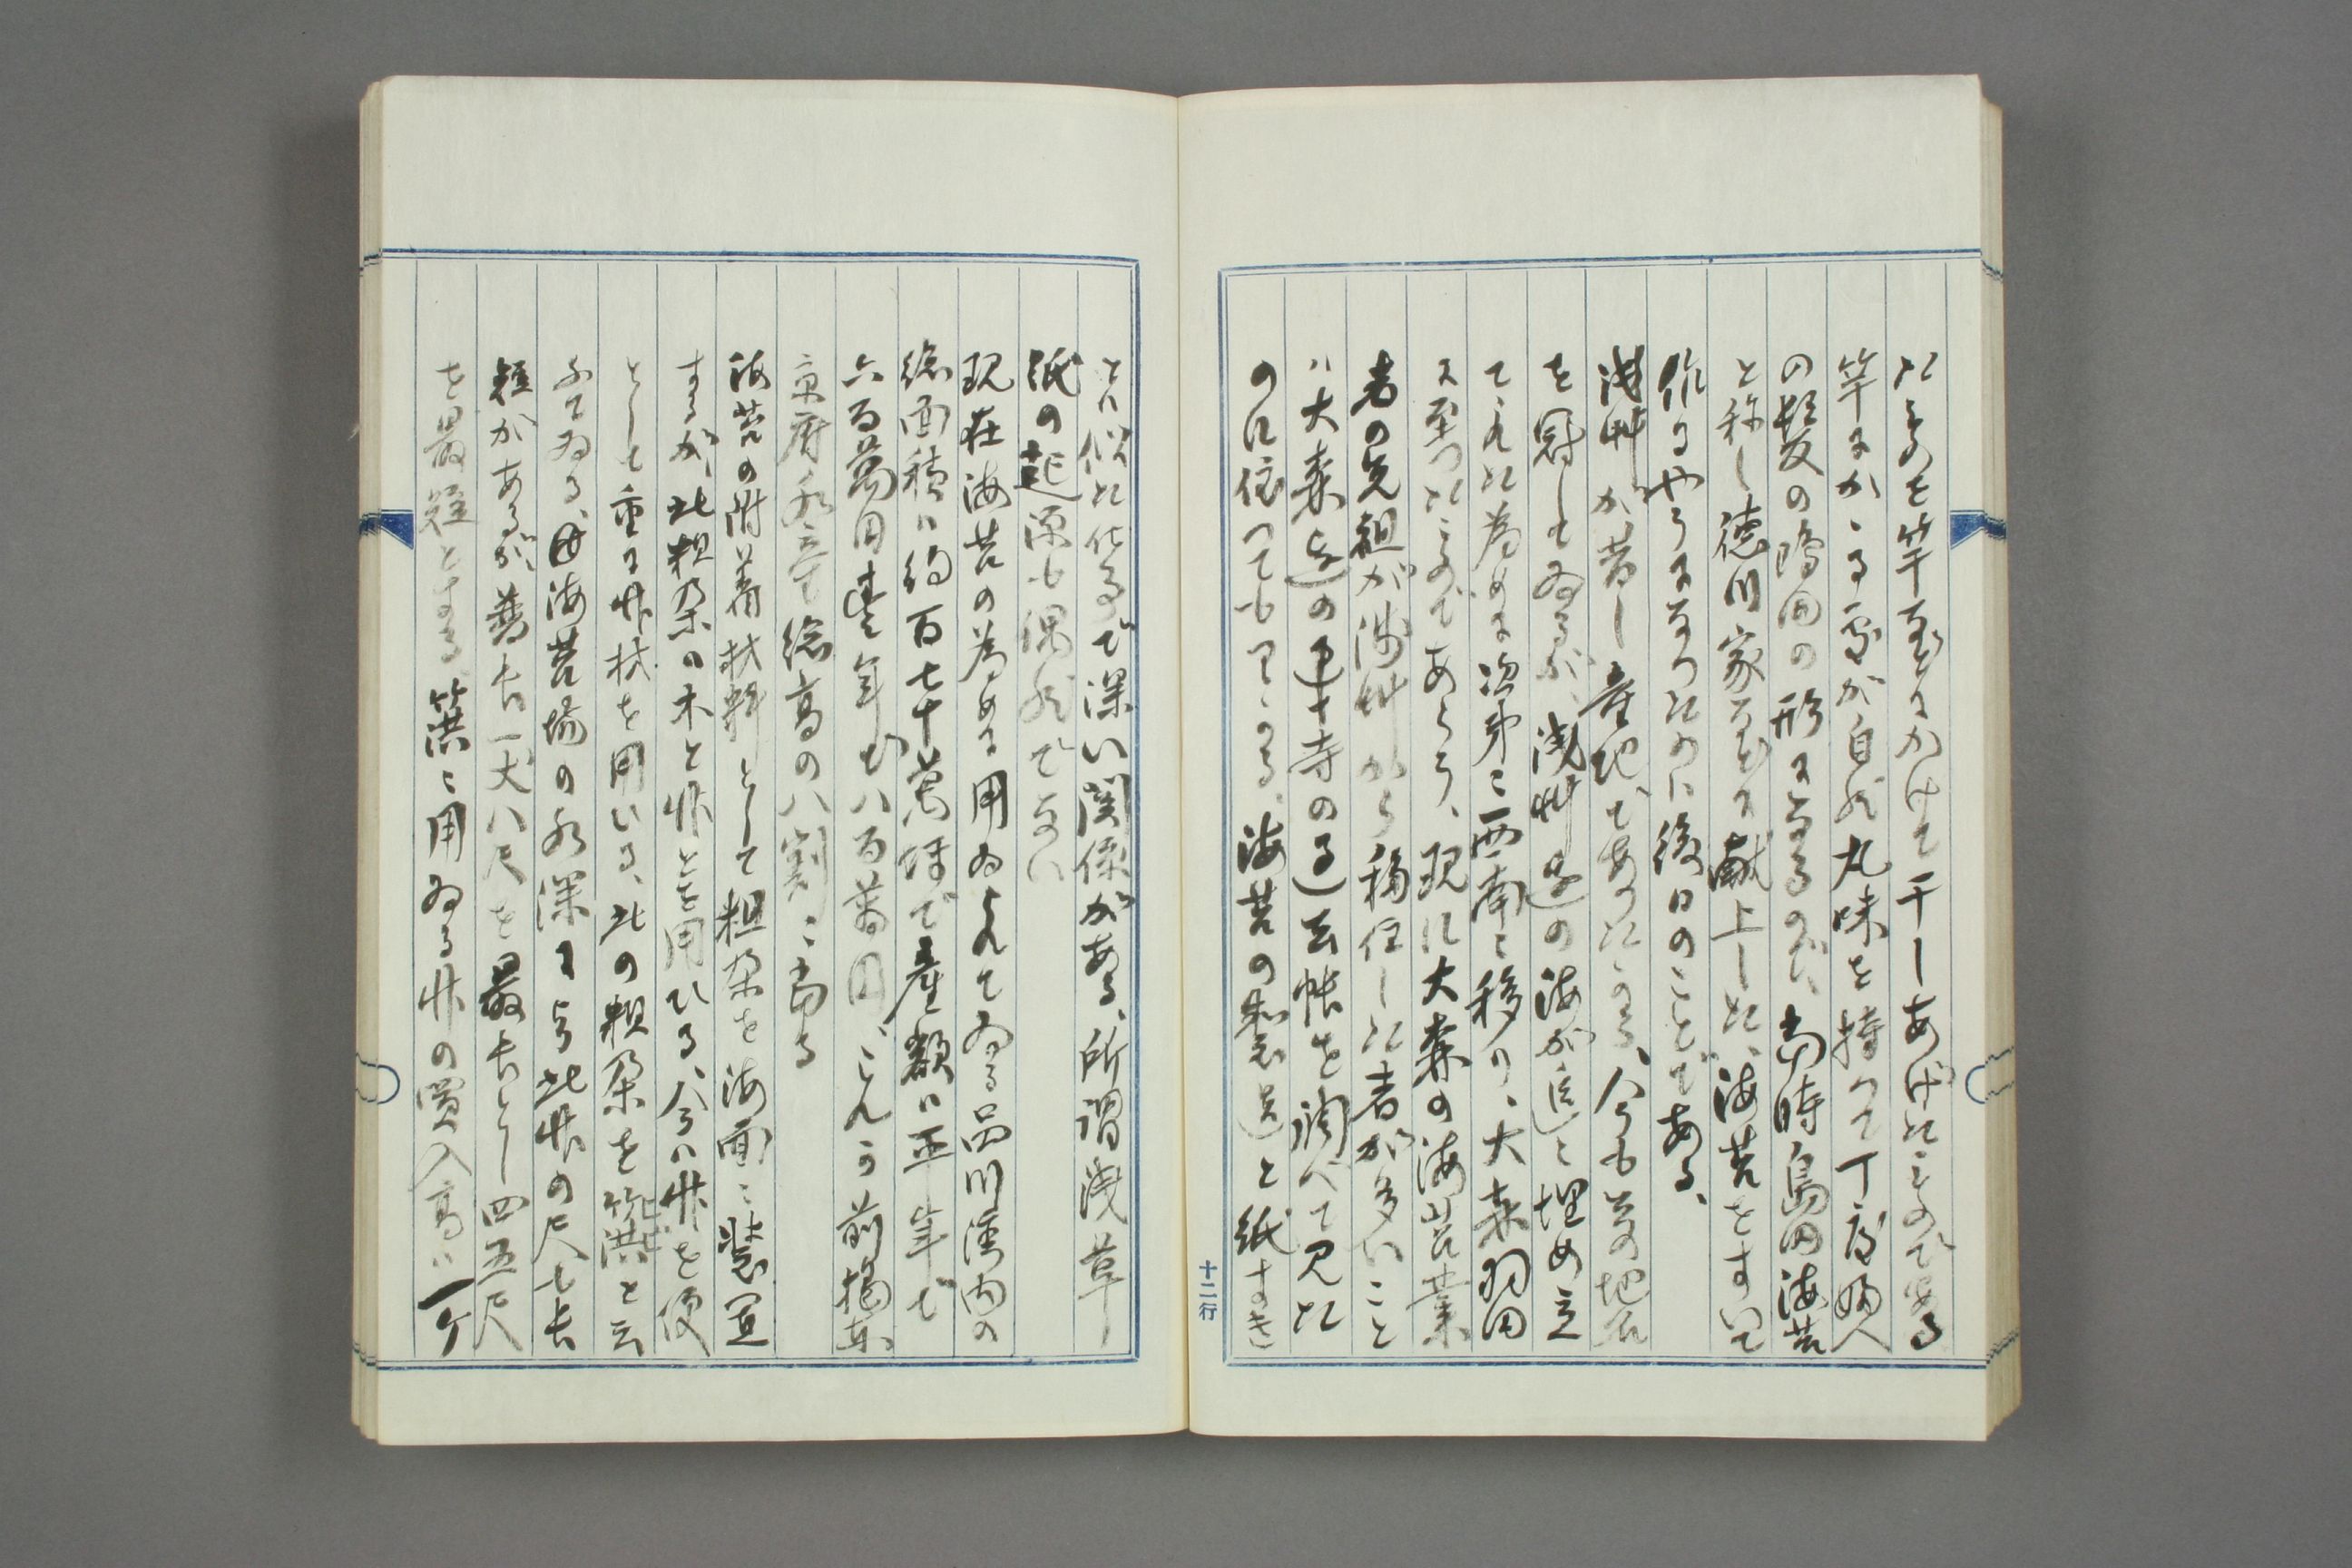 たものを竿などにかけて干しあげたものである
竿にかゝる処が自然丸味を持つて丁度婦人
の髷の島田の形になるので、当時島田海苔
と称し徳川家などに献上した、海苔をすいて
作るやうになつたのは後日のことである、
浅草が昔し産地であつた、今も其の地名
を冠してゐるが、浅草辺の海が追々埋め立
てられた為めに次第に西南に移り、大森羽田
に至つたものであらう、現に大森の海苔業
者の先祖が浅草から移住した者が多いこと
ハ大森辺の寺の過去帳を調べて見た
のに依つても
海苔の製造と紙すき
とハ似た仕事で深い関係がある、所謂浅草
紙の起源も偶然でない
現在海苔の為めに用ゐられてゐる品川湾内の
総面積は約百七十萬坪で産額は平年で
六百萬円豊年で八百萬円、これが前掲東
京府水産総高の八割に当る
海苔の附着材料として粗朶を海面に装置
するが、此粗朶の木と竹とを用ひる、今は竹を便
として重に竹材を用いる、此の粗朶を篊と云
ふてゐる、海苔場の水深により此竹の尺も長
短があるが、普長一丈八尺を最長とし四五尺
を最短とする、篊に用ゐる竹の買入高は一ケ
十二行